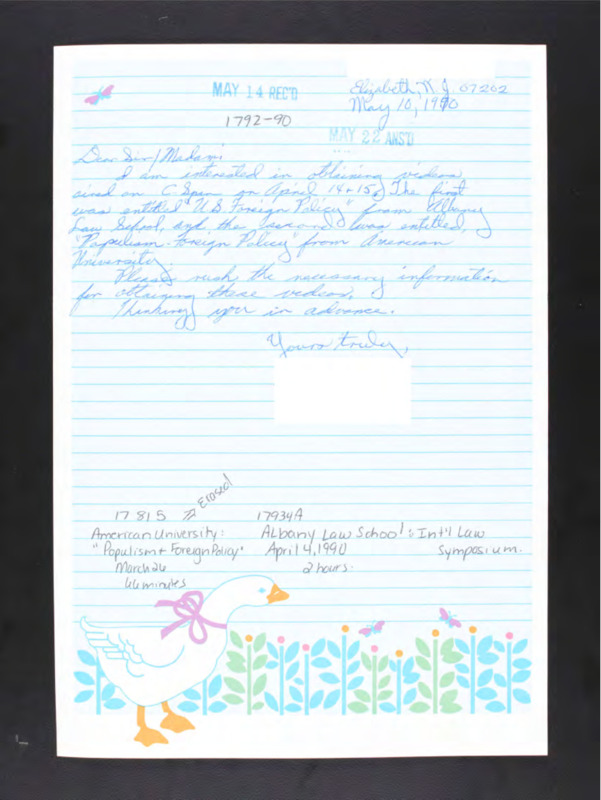 MAY 14 REC'D
Elizabeth, N.J. 07202
May 10, 1990
1792-90
MAY 22 ANS'D
Dear Sir/Madam:
I am interested in obtaining videos
aired on C-Span on April 14+15. The first
was entitled "U.S. Foreign Policy" from Albany
Law School, and the second was entitled,
"Populism Foreign Policy" from American
University.
Please rush the necessary information
for obtaining these videos.
Thanking you in advance.
Yours truly,
Erased
17815
17934A
American University:
Albany Law School: Int'l Law
"Populism + Foreign Policy"
April 4, 1990
Symposium.
March 26
2 hours.
66 minutes